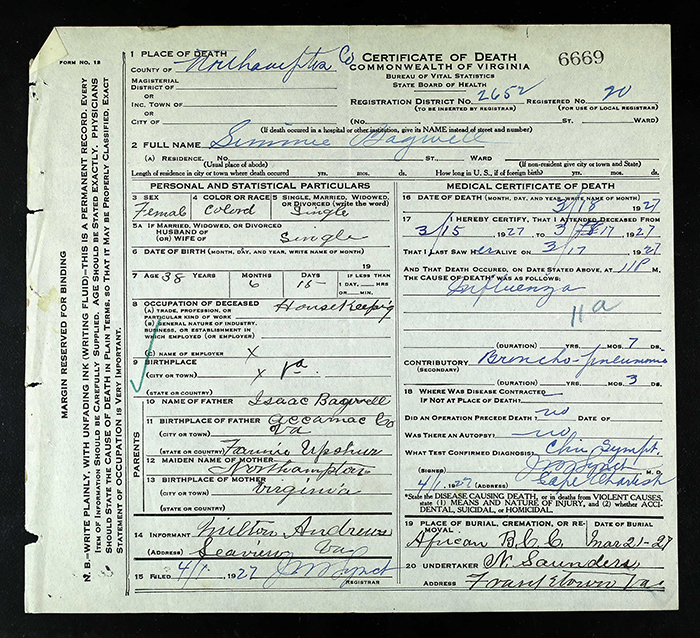 FORM NO. 12
MARGIN RESERVED FOR BINDING
N. B.—WRITE PLAINLY, WITH UNFADING INK (WRITING FLUID)—THIS IS A PERMANENT RECORD. EVERY
ITEM OF INFORMATION SHOULD BE CAREFULLY SUPPLIED. AGE SHOULD BE STATED EXACTLY. PHYSICIANS
SHOULD STATE THE CAUSE OF DEATH IN PLAIN TERMS, SO THAT IT MAY BE PROPERLY CLASSIFIED. EXACT
STATEMENT OF OCCUPATION IS VERY IMPORTANT.
1 PLACE OF DEATH
COUNTY OF Northampton Co
MAGISTERIAL
DISTRICT OF
OR
INC. TOWN OF
OR
CITY OF
CERTIFICATE OF DEATH
COMMONWEALTH OF VIRGINIA
BUREAU OF VITAL STATISTICS
STATE BOARD OF HEALTH
6669
REGISTRATION DISTRICT NO. 2652 REGISTERED NO. 20
(TO BE INSERTED BY REGISTRAR) (FOR USE OF LOCAL REGISTRAR)
(NO. ST. WARD)
(If death occured in a hospital or other institution, give its NAME instead of street and number)
2 FULL NAME Simmie Bagwell
(A) RESIDENCE. NO. ST. WARD
(Usual place of abode) (If non-resident give city or town and State)
Length of residence in city or town where death occured yrs. mos. ds. How long in U. S., if of foreign birth? yrs. mos. ds.
PERSONAL AND STATISTICAL PARTICULARS
3 SEX 4 COLOR OR RACE 5 SINGLE, MARRIED, WIDOWED, OR DIVORCED (write the word)
Femal Colord Single
5A IF MARRIED, WIDOWED, OR DIVORCED
HUSBAND OF
(OR) WIFE OF Single
6 DATE OF BIRTH (MONTH, DAY, AND YEAR, WRITE NAME OF MONTH)
19
7 AGE 38 YEARS MONTHS 6 DAYS 15 IF LESS THAN
1 DAY, HRS
OR MIN.
8 OCCUPATION OF DECEASED HouseKeeping
(A) TRADE, PROFESSION, OR
PARTICULAR KIND OF WORK
(B) GENERAL NATURE OF INDUSTRY,
BUSINESS, OR ESTABLISHMENT IN
WHICH EMPLOYED (OR EMPLOYER)
(C) NAME OF EMPLOYER X
9 BIRTHPLACE
(CITY OR TOWN) X Va
(STATE OR COUNTRY)
PARENTS
10 NAME OF FATHER Isaac Bagwell
11 BIRTHPLACE OF FATHER Accamac Co
(CITY OR TOWN) Va
(STATE OR COUNTRY)
12 MAIDEN NAME OF MOTHER Fannie Upshur
13 BIRTHPLACE OF MOTHER Northampton
(CITY OR TOWN) Virginia
(STATE OR COUNTRY)
14 INFORMANT Milton Andrews
(ADDRESS) Seaview Va
15 FILED 4/1 1927
REGISTRAR
MEDICAL CERTIFICATE OF DEATH
16 DATE OF DEATH (MONTH, DAY, AND YEAR, WRITE NAME OF MONTH)
3/18 1927
17 I HEREBY CERTIFY, THAT I ATTENDED DECEASED FROM
3/15 1927 TO 3/17 1927
THAT I LAST SAW HER ALIVE ON 3/17 1927
AND THAT DEATH OCCURED, ON DATE STATED ABOVE, AT 11P M.
THE CAUSE OF DEATH* WAS AS FOLLOWS:
Influenza
11a
(DURATION) YRS. MOS. 7 DS.
CONTRIBUTORY Broncho-pneumonia
(SECONDARY)
(DURATION) YRS. MOS. 3 DS.
18 WHERE WAS DISEASE CONTRACTED
IF NOT AT PLACE OF DEATH?
DID AN OPERATION PRECEDE DEATH? no DATE OF
WAS THERE AN AUTOPSY? no
WHAT TEST CONFIRMED DIAGNOSIS? Clin Sympt.
(SIGNED) M. D.
4/1 1927 Cape Charles
*State the DISEASE CAUSING DEATH, or in deaths from VIOLENT CAUSES,
state (1) MEANS AND NATURE OF INJURY, and (2) whether ACCI-
DENTAL, SUICIDAL, or HOMICIDAL.
19 PLACE OF BURIAL, CREMATION, OR RE- DATE OF BURIAL
MOVAL.
African B.C.C. Mar 21-27
20 UNDERTAKER N. Saunders
ADDRESS Franktown Va